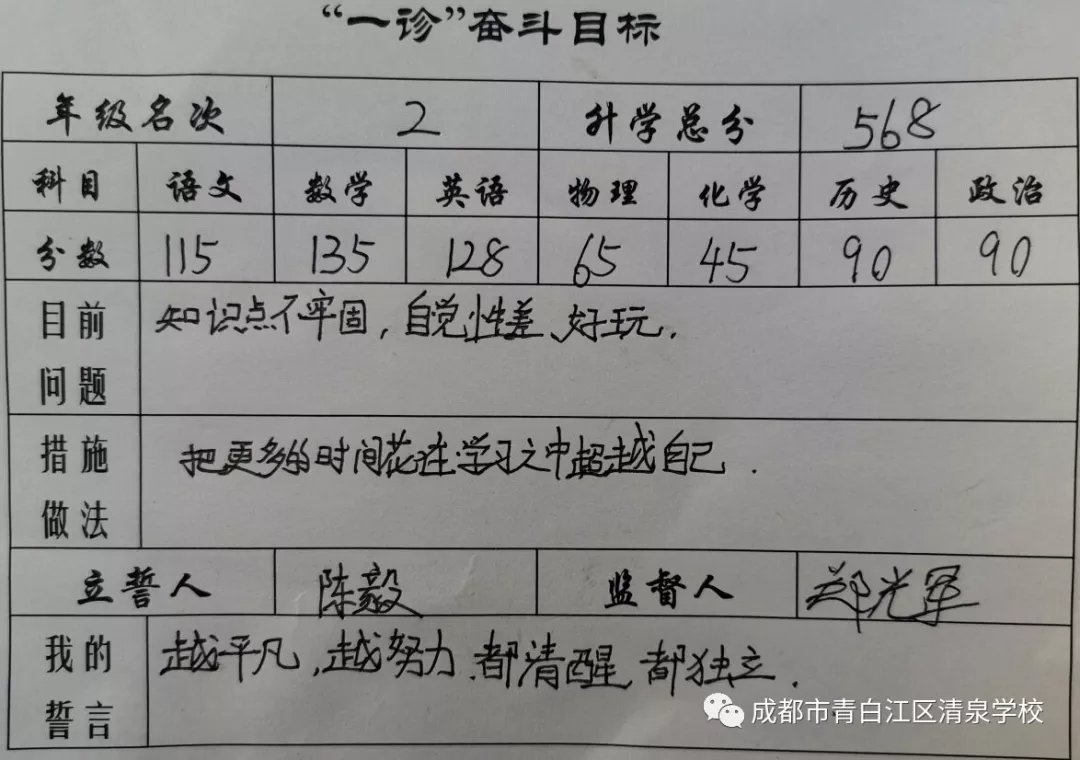 “一诊”奋斗目标
年级名次 2 升学总分 568
科目 语文 数学 英语 物理 化学 历史 政治
分数 115 135 128 65 45 90 90
目前 知识点不牢固，自觉性差、好玩.
问题
措施 把更多的时间花在学习之中超越自己.
做法
立誓人 陈毅 监督人 郑光军
我的 越平凡,越努力.都清醒,都独立.
誓言
成都市青白江区清泉学校